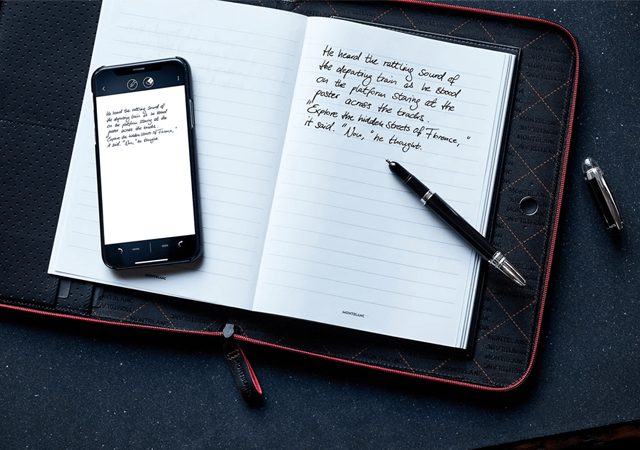 He heard the rattling sound of
the departing train as he stood
on the platform staring at the
poster across the tracks.
„Explore the hidden streets of Florence,"
it said. "Now," he thought.
MONTBLANC
He heard the rattling sound of
the departing train as he stood
on the platform staring at the
poster across the tracks.
„Explore the hidden streets of Florence,"
it said. "Now," he thought.